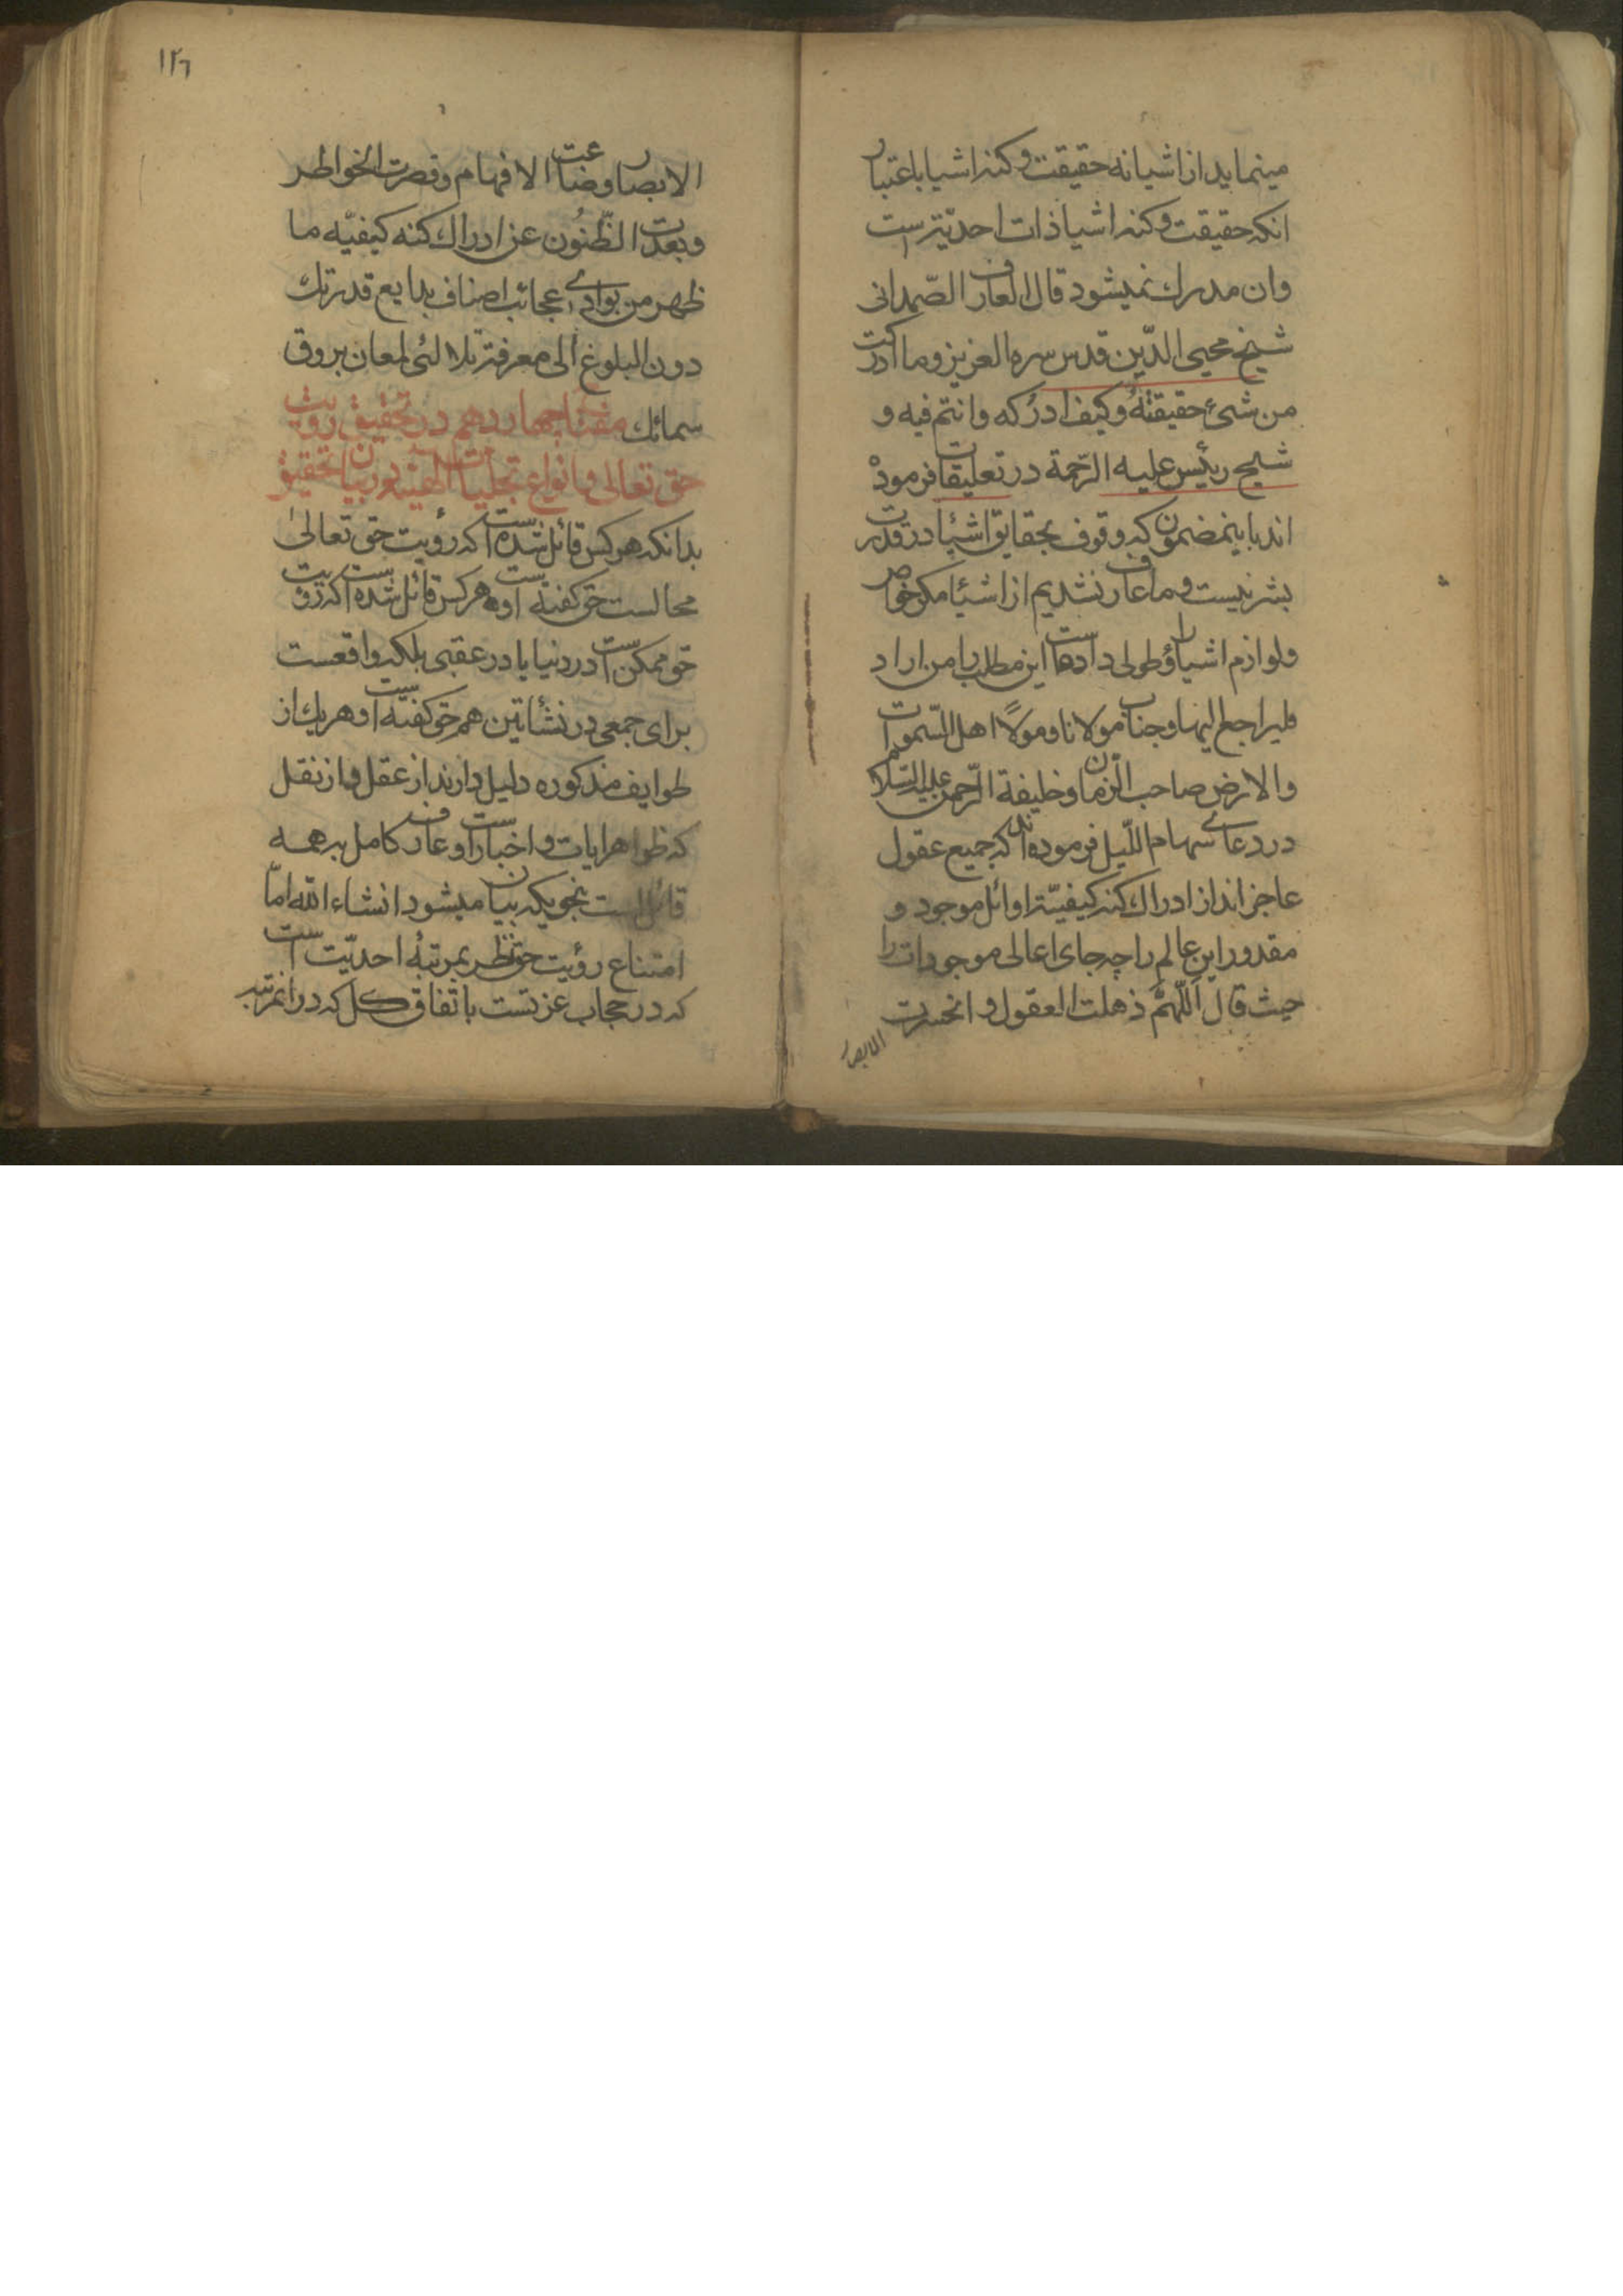 مینماید از اشیا نه حقیقت و کنه اشیا باعتبار
انکه حقیقت و کنه اشیا ذات احدیّتست
وان مدرک نمیشود قال العارف الصّمدانی
شیخ محیی الدّین قدس سره العزیز وما ادرکت
من شیء حقیقتهُ وکیف ادرکه وانتم فیه و
شیخ رئیس علیه الرّحمة در تعلیقات فرموده
اند باینمضمون که وقوف بحقایق اشیا در قدرت
بشر نیست و ما عارف نشدیم از اشیا مکر خواص
ولوازم اشیا را و طولی داده است این مطلب را من اراد
فلیراجع الیها وجناب مولانا و مولا اهل السّموات
والارض صاحب الزمان وخلیفة الرّحمن علیه السّلام
در دعای سهام اللّیل فرموده اند که جمیع عقول
عاجز اند از ادراک کنه کیفیّة اوائل موجود و
مقدور این عالم را چه جای اعالی موجودات را
حیث قال اَللّهمَّ ذهلت العقول و انحسرت
الابصار
١٢٦
الابصار وضاعت الافهام وقصرت الخواطر
وبعدت الظّنُون عن ادراک کنه کیفیّه ما
ظهر من بوادی عجائب اصناف بدایع قدرتک
دون البلوغ الی معرفة تلالئی لمعان بروق
سمائک مفتاح چهاردهم در تحقیق رویت
حق تعالی و انواع تجلیات الهیّه و در بیان تحقیق
بدانکه هر کس قائل شده است که رؤیت حق تعالیٰ
محالست حق کفته است و هر کس قائل شده است که رؤیت
حق ممکن است در دنیا یا در عقبی بلکه واقعست
برای جمعی در نشأتین هم حق کفته است و هر یک از
طوایف مذکوره دلیل دارند از عقل و از نقل
که ظواهر ایات و اخبار است و عارف کامل بر همه
قائل است بنحویکه بیان میشود انشاء الله امّا
امتناع رؤیت حق بنظر بمرتبهٔ احدیّت است
که در حجاب عزتست باتفاق کل که در انمرتبه